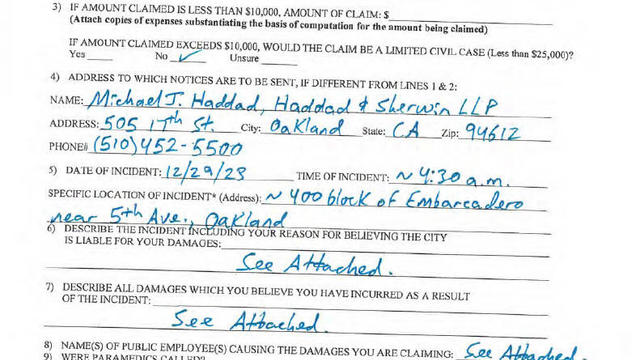 3) IF AMOUNT CLAIMED IS LESS THAN $10,000, AMOUNT OF CLAIM: $
(Attach copies of expenses substantiating the basis of computation for the amount being claimed)
IF AMOUNT CLAIMED EXCEEDS $10,000, WOULD THE CLAIM BE A LIMITED CIVIL CASE (Less than $25,000)?
Yes No ✓ Unsure
4) ADDRESS TO WHICH NOTICES ARE TO BE SENT, IF DIFFERENT FROM LINES 1 & 2:
NAME: Michael J. Haddad, Haddad & Sherwin LLP
ADDRESS: 505 17th St. City: Oakland State: CA Zip: 94612
PHONE# (510) 452-5500
5) DATE OF INCIDENT: 12/29/23 TIME OF INCIDENT: ~ 4:30 a.m.
SPECIFIC LOCATION OF INCIDENT* (Address): ~ 400 block of Embarcadero
near 5th Ave., Oakland
6) DESCRIBE THE INCIDENT INCLUDING YOUR REASON FOR BELIEVING THE CITY
IS LIABLE FOR YOUR DAMAGES:
See Attached.
7) DESCRIBE ALL DAMAGES WHICH YOU BELIEVE YOU HAVE INCURRED AS A RESULT
OF THE INCIDENT:
See Attached.
8) NAME(S) OF PUBLIC EMPLOYEE(S) CAUSING THE DAMAGES YOU ARE CLAIMING: See Attached.
9) WERE PARAMEDICS CALLED?